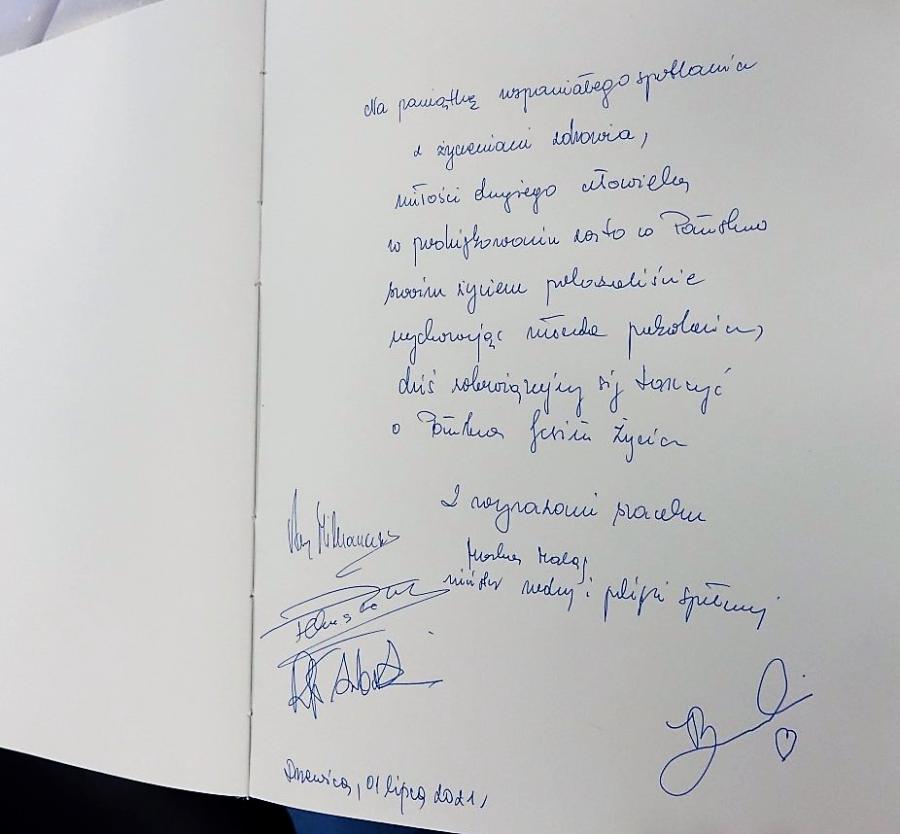 Na pamiątkę wspaniałego spotkania
z życzeniami zdrowia,
miłości drugiego człowieka
w podziękowaniu za to co Państwo
swoim życiem pokazaliście
wychowując młode pokolenia,
dziś zobowiązujemy się tańczyć
o Państwa jesień życia
Z wyrazami szacunku
Marlena Maląg
minister rodziny i polityki społecznej
Drzewica, 01 lipca 2021,